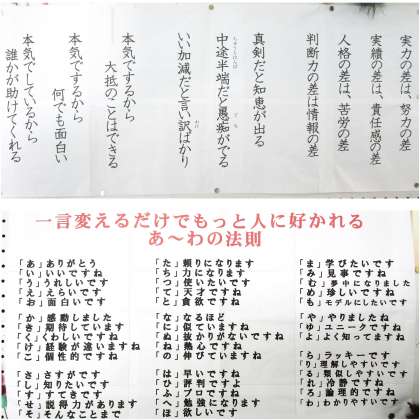 実力の差は、努力の差
実績の差は、責任感の差
人格の差は、苦労の差
判断力の差は情報の差
真剣だと知恵が出る
中途半端だと愚痴がでる
いい加減だと言い訳ばかり
本気でするから
大抵のことはできる
本気でするから
何でも面白い
本気でしているから
誰かが助けてくれる
一言変えるだけでもっと人に好かれる
あ〜わの法則
「あ」ありがとう
「い」いいですね
「う」うれしいです
「え」えらいです
「お」面白いです
「か」感動しました
「き」期待しています
「く」くわしいですね
「け」経験が違いますね
「こ」個性的ですね
「さ」さすがです
「し」知りたいです
「す」すてきです
「せ」説得力があります
「そ」そんなことまで
「た」頼りになります
「ち」力になります
「つ」使いたいです
「て」天才ですね
「と」貪欲ですね
「な」なるほど
「に」似ていますね
「ぬ」抜かりがないですね
「ね」熱心ですね
「の」伸びていますね
「は」早いですね
「ひ」評判ですよ
「ふ」プロですね
「へ」勉強になります
「ほ」欲しいです
「ま」学びたいです
「み」見事ですね
「む」夢中になりました
「め」珍しいですね
「も」モデルにしたいです
「や」やりましたね
「ゆ」ユニークですね
「よ」よく知ってますね
「ら」ラッキーです
「り」理解しやすいです
「る」類似しやすいです
「れ」冷静ですね
「ろ」論理的ですね
「わ」わかりやすいです